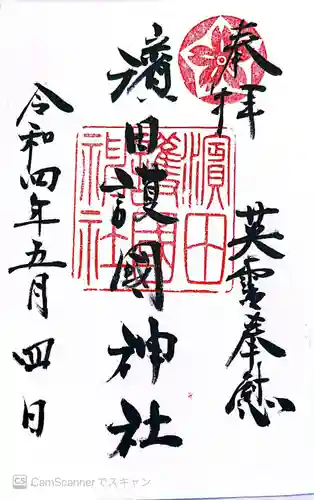 奉拝
英霊奉慰
濱田護國神社
濱田
護國
神社
令和四年五月四日
CS CamScannerでスキャン